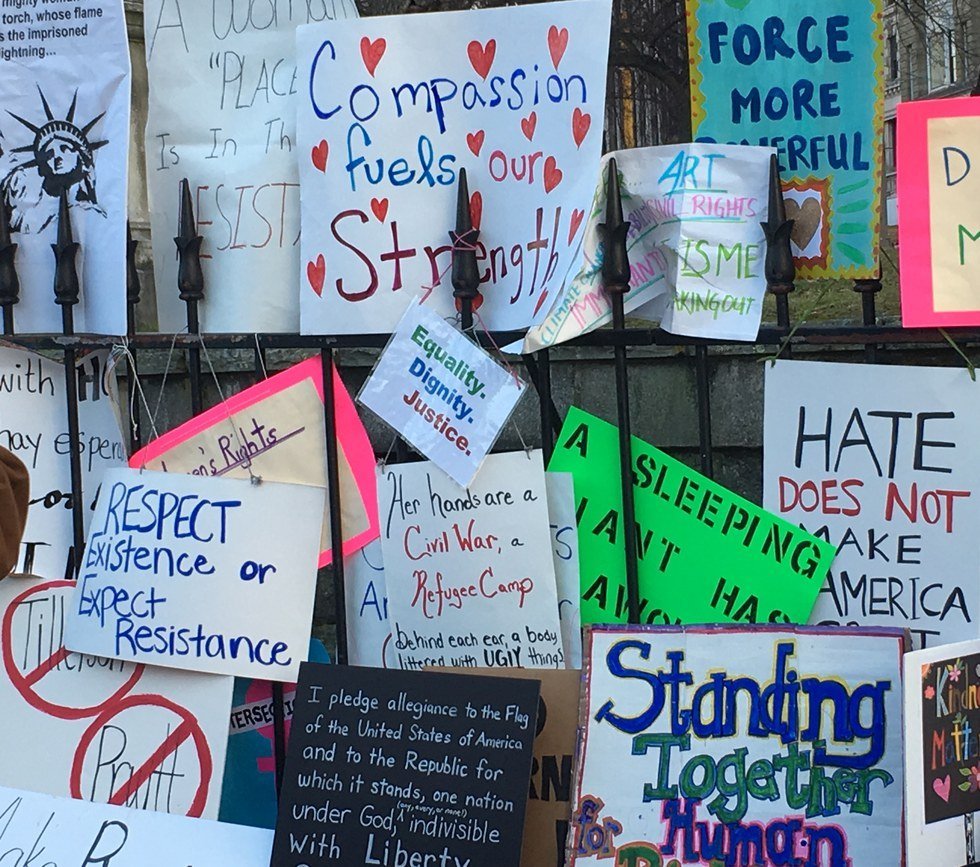 mighty woman
torch, whose flame
is the imprisoned
lightning...
A Woman
"PLACE
Is In Th
RESIST
Compassion
fuels our
Strength
ART
CIVIL RIGHTS
IS ME
AKING OUT
CLIMATE
IMMI
FORCE
MORE
POWERFUL
D
M
with
may
Equality.
Dignity.
Justice.
en's Rights
RESPECT
Existence or
Expect
Resistance
Her hands are a
Civil War, a
Refugee Camp
behind each ear, a body
littered with UGLY things
A SLEEPING
IANT HAS
AWO
HATE
DOES NOT
MAKE
AMERICA
Tillerson
Pruitt
TERSECTI
I pledge allegiance to the Flag
of the United States of America
and to the Republic for
which it stands, one nation
under God, (any, every, or none!) indivisible
with Liberty
Standing
Together
for Human
Kind
Matt